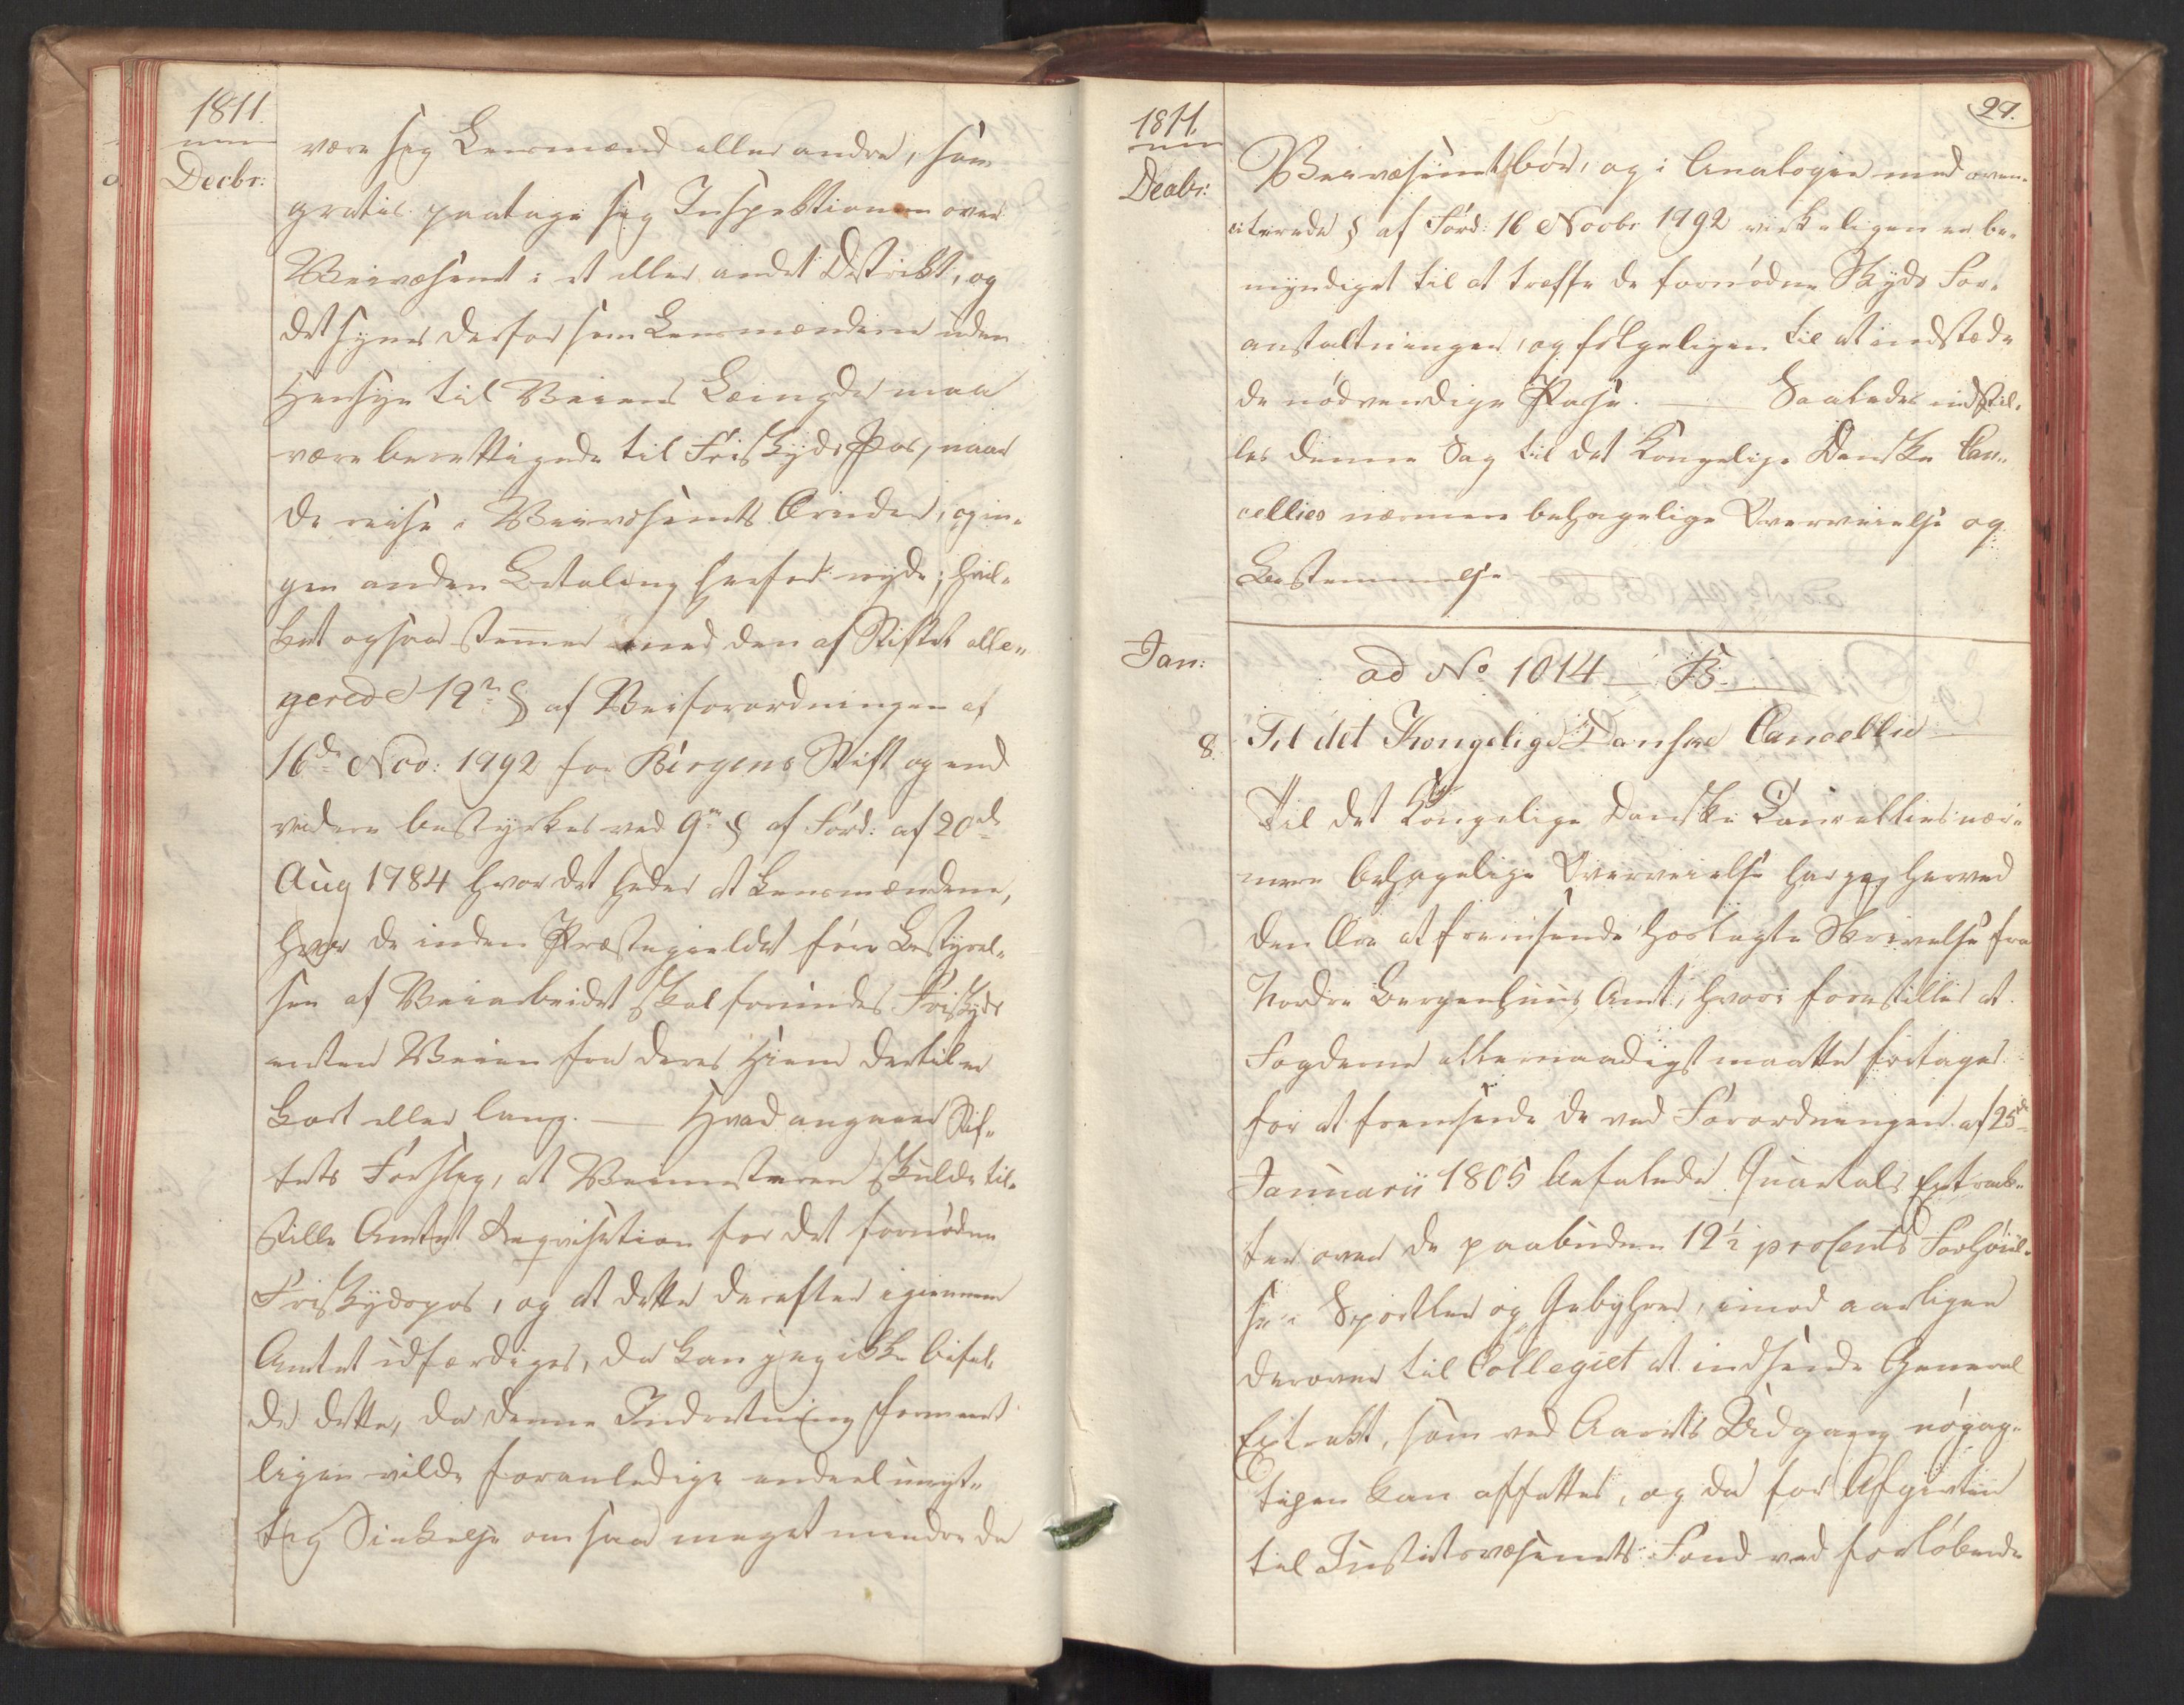 1811.
Decbr:
være sig Lensmænd eller andre, som
gratis paatage sig Inspektionen over
Veivæsenet i et eller andet Distrikt, og
det synes derfor som Lensmændene uden
Hensyn til Veiens Længde maa
være berettigede til Friskyds Pas, naar
de reise i Veivæsenets Ærinder, og in-
gen anden Betaling herfor nyde; hvil-
ket ogsaa stemmer med den af Stiftet alle-
gerede 12n § af Veiforordningen af
16de Nov: 1792 for Bergens Stift og end
videre bestyrkes ved 9n § af Ford: af 20de
Aug 1784 hvor det heder at Lensmændene,
hvor de inden Præstegieldet føre Bestyrel-
sen af Veiarbeidet skal forundes Friskyds
enten Veien fra deres Hiem dertil er
kort eller lang. — Hvad angaaer Stif-
tets Forslag, at Veimesteren skulde til-
stille Amtet Reqvisition for det fornødne
Friskydspas, og at dette derefter igiennem
Amtet udfærdiges, da kan jeg ikke bifal-
de dette, da denne Indretning formeent-
ligen vilde foranledige endeel unyt-
tig Sinkelse om saa meget mindre da
1811.
Decbr:
29.
Veivæsenet bør, og i Analogie med oven-
citerede § af Ford: 16 Novbr 1792 virkeligen er be-
myndiget til at træffe de fornødne Skyds For-
anstaltninger, og følgeligen til at indstæde
de nødvendige Passe. — Saaledes indstil-
les denne Sag til det Kongelige Danske Can-
cellies nærmere behagelige Overveielse og
Bestemmelse
Jan:
ad No 1014 B.
8. Til det Kongelige Danske Cancellie
Til det Kongelige Danske Cancellies nær-
mere behagelige Overveielse har jeg herved
den Ære at fremsende hoslagte Skrivelse fra
Nordre Bergenhuus Amt, hvori forestilles at
Fogderne allernaadigst maatte fritages
for at fremsende de ved Forordningen af 25de
Januarii 1805 befalede Quartals Extrak-
ter over de paabudne 12½ procents Forhøiel-
se i Sportler og Gebyhrer, imod aarligen
derover til Collegiet at indsende General
Extrakt, som ved Aarets Udgang nøyag-
tigen kan affattes, og da for Afgivten
til Justitsvæsenets Fond ved forløbende